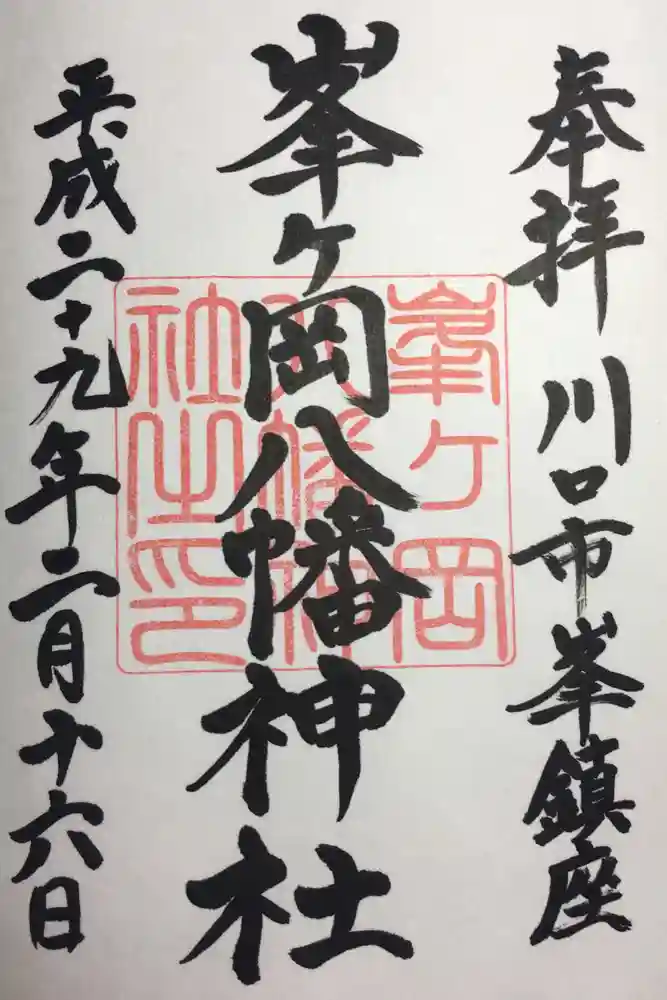 奉拝 川口市峯鎮座
峯ヶ岡八幡神社
平成二十九年二月十六日
峯ヶ岡
八幡神
社之印